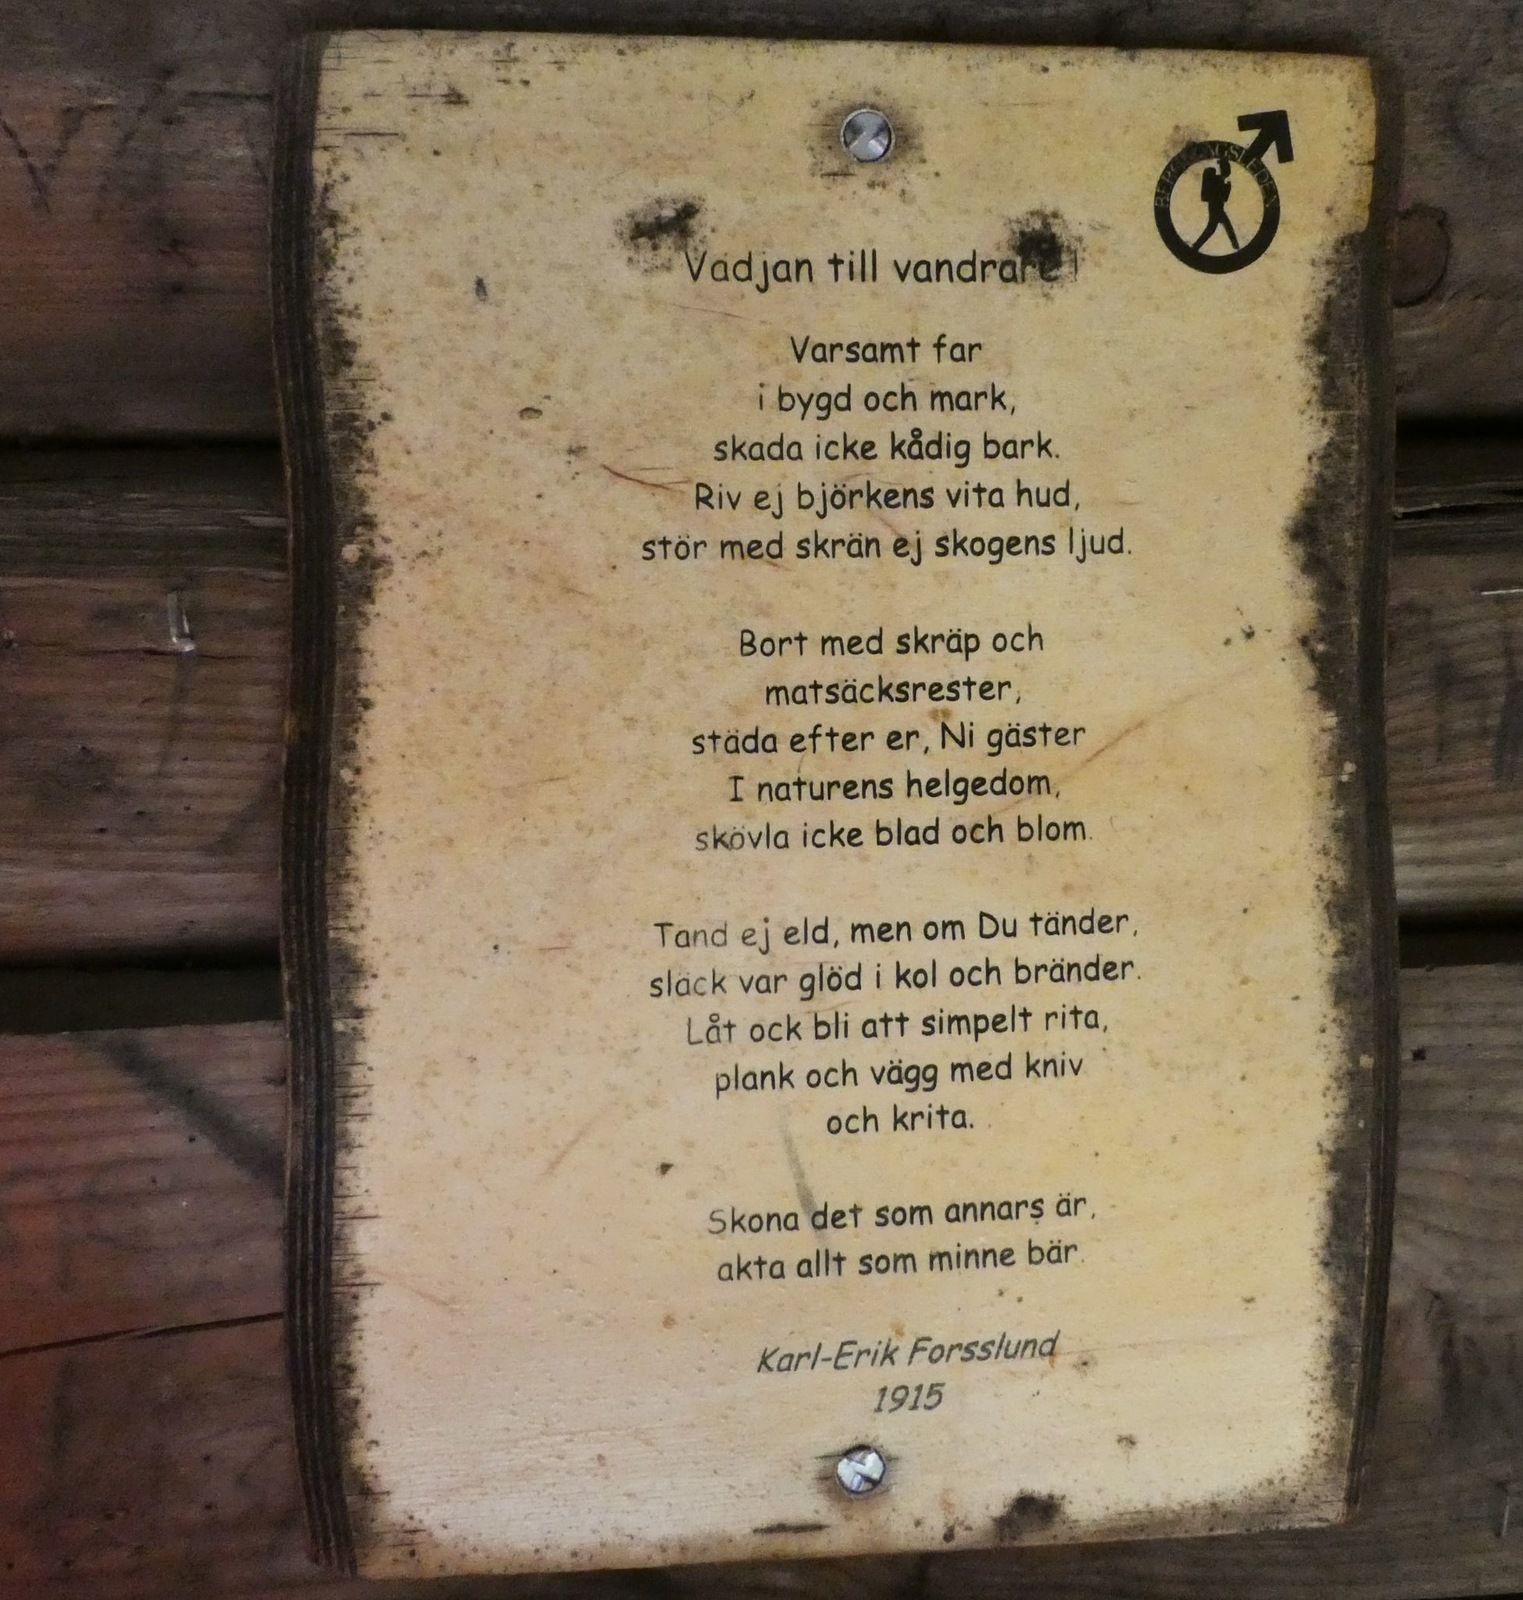 BERGSLAGSLEDEN
Vädjan till vandrare!
Varsamt far
i bygd och mark,
skada icke kådig bark.
Riv ej björkens vita hud,
stör med skrän ej skogens ljud.
Bort med skräp och
matsäcksrester,
städa efter er, Ni gäster
I naturens helgedom,
skövla icke blad och blom.
Tänd ej eld, men om Du tänder,
släck var glöd i kol och bränder.
Låt ock bli att simpelt rita,
plank och vägg med kniv
och krita.
Skona det som annars är,
akta allt som minne bär.
Karl-Erik Forsslund
1915